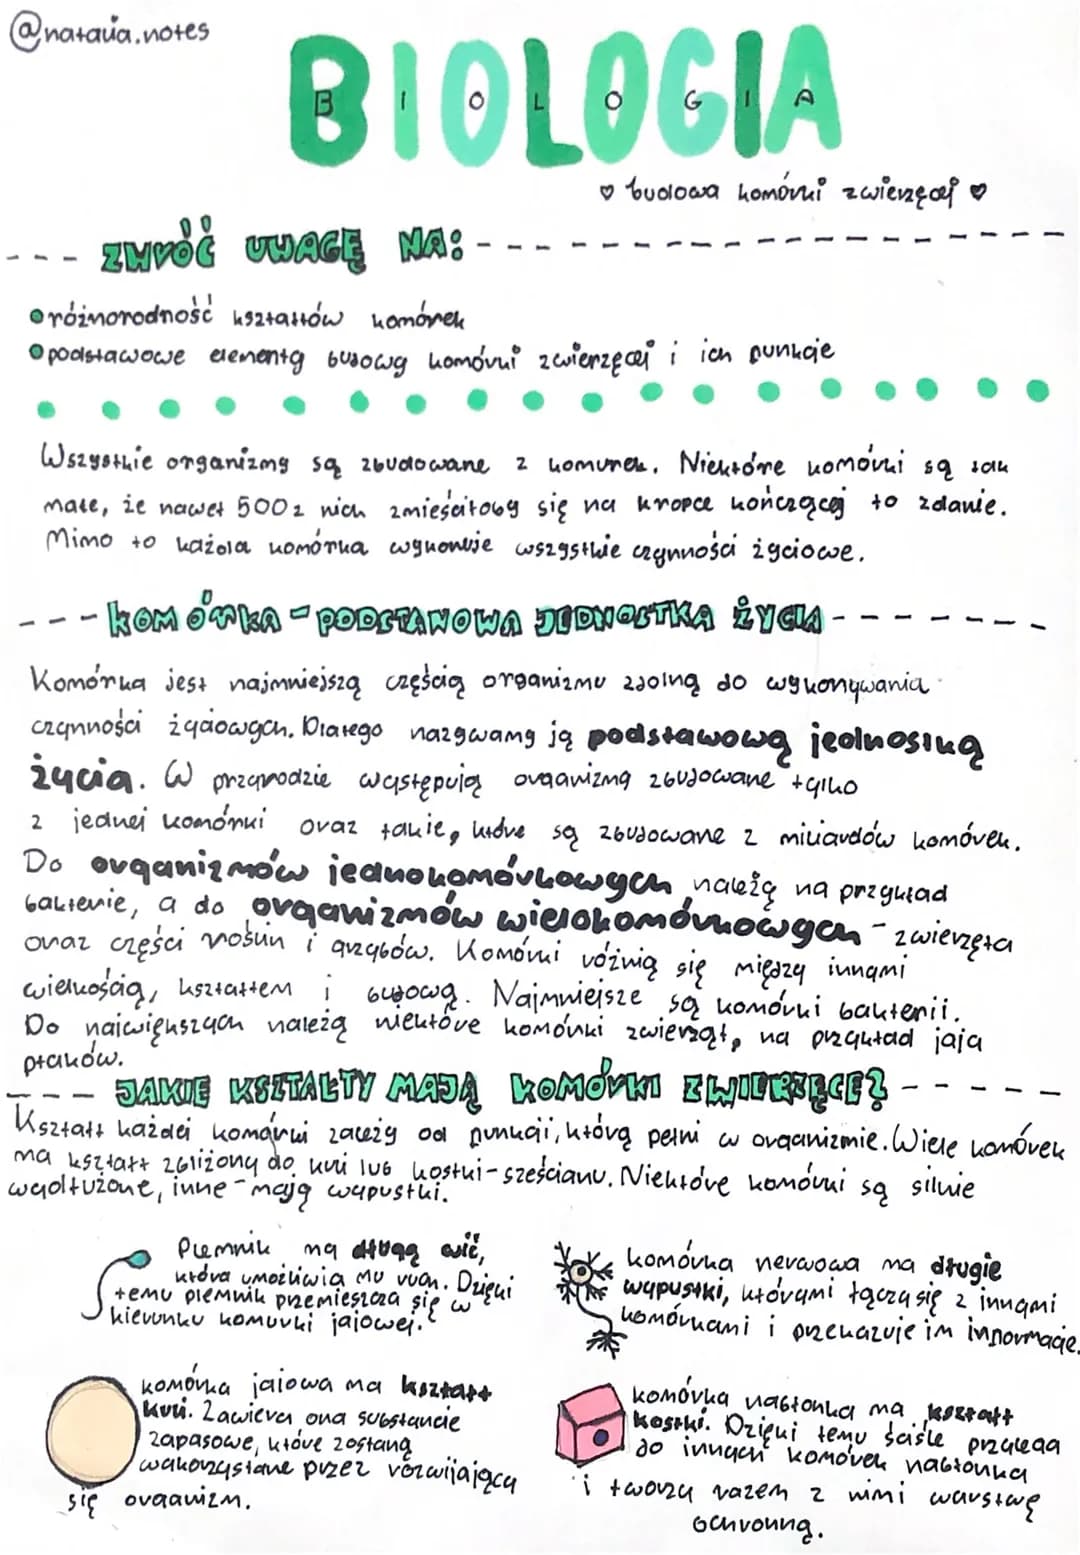 @natalia.notes
BIOLOGIA
B I O L O G I A
♡ budowa komórki zwierzęcej ♡
ZWRÓĆ UWAGĘ NA:
różnorodność kształtów komórek
podstawowe elementy budowy komórki zwierzęcej i ich funkcje
Wszystkie organizmy są zbudowane z komurek. Niektóre komórki są tak
małe, że nawet 500 z nich zmieściłoby się na kropce kończącej to zdanie.
Mimo to każda komórka wykonuje wszystkie czynności życiowe.
KOMÓRKA - PODSTAWOWA JEDNOSTKA ŻYCIA
Komórka jest najmniejszą częścią organizmu zdolną do wykonywania
czynności życiowych. Dlatego nazywamy ją podstawową jednostką
życia. W przyrodzie występują organizmy zbudowane tylko
z jednej komórki oraz takie, które są zbudowane z miliardów komórek.
Do organizmów jednokomórkowych należą na przykład
bakterie, a do organizmów wielokomórkowych - zwierzęta
oraz części roślin i grzybów. Komórki różnią się między innymi
wielkością, kształtem i budową. Najmniejsze są komórki bakterii.
Do największych należą niektóre komórki zwierząt, na przykład jaja
ptaków.
JAKIE KSZTAŁTY MAJĄ KOMÓRKI ZWIERZĘCE?
Kształt każdej komórki zależy od funkcji, którą pełni w organizmie. Wiele komórek
ma kształt zbliżony do kuli lub kostki - sześcianu. Niektóre komórki są silnie
wydłużone, inne - mają wypustki.
Plemnik ma długą wić,
która umożliwia mu ruch. Dzięki
temu plemnik przemieszcza się w
kierunku komurki jajowej.
komórka nerwowa ma długie
wypustki, którymi łączy się z innymi
komórkami i przekazuje im informacje.
komórka jajowa ma kształt
kuli. Zawiera ona substancje
zapasowe, które zostaną
wykorzystane przez rozwijający
się organizm.
komórka nabłonka ma kształt
kostki. Dzięki temu ściśle przylega
do innych komórek nabłonka
i tworzy razem z nimi warstwę
ochronną.